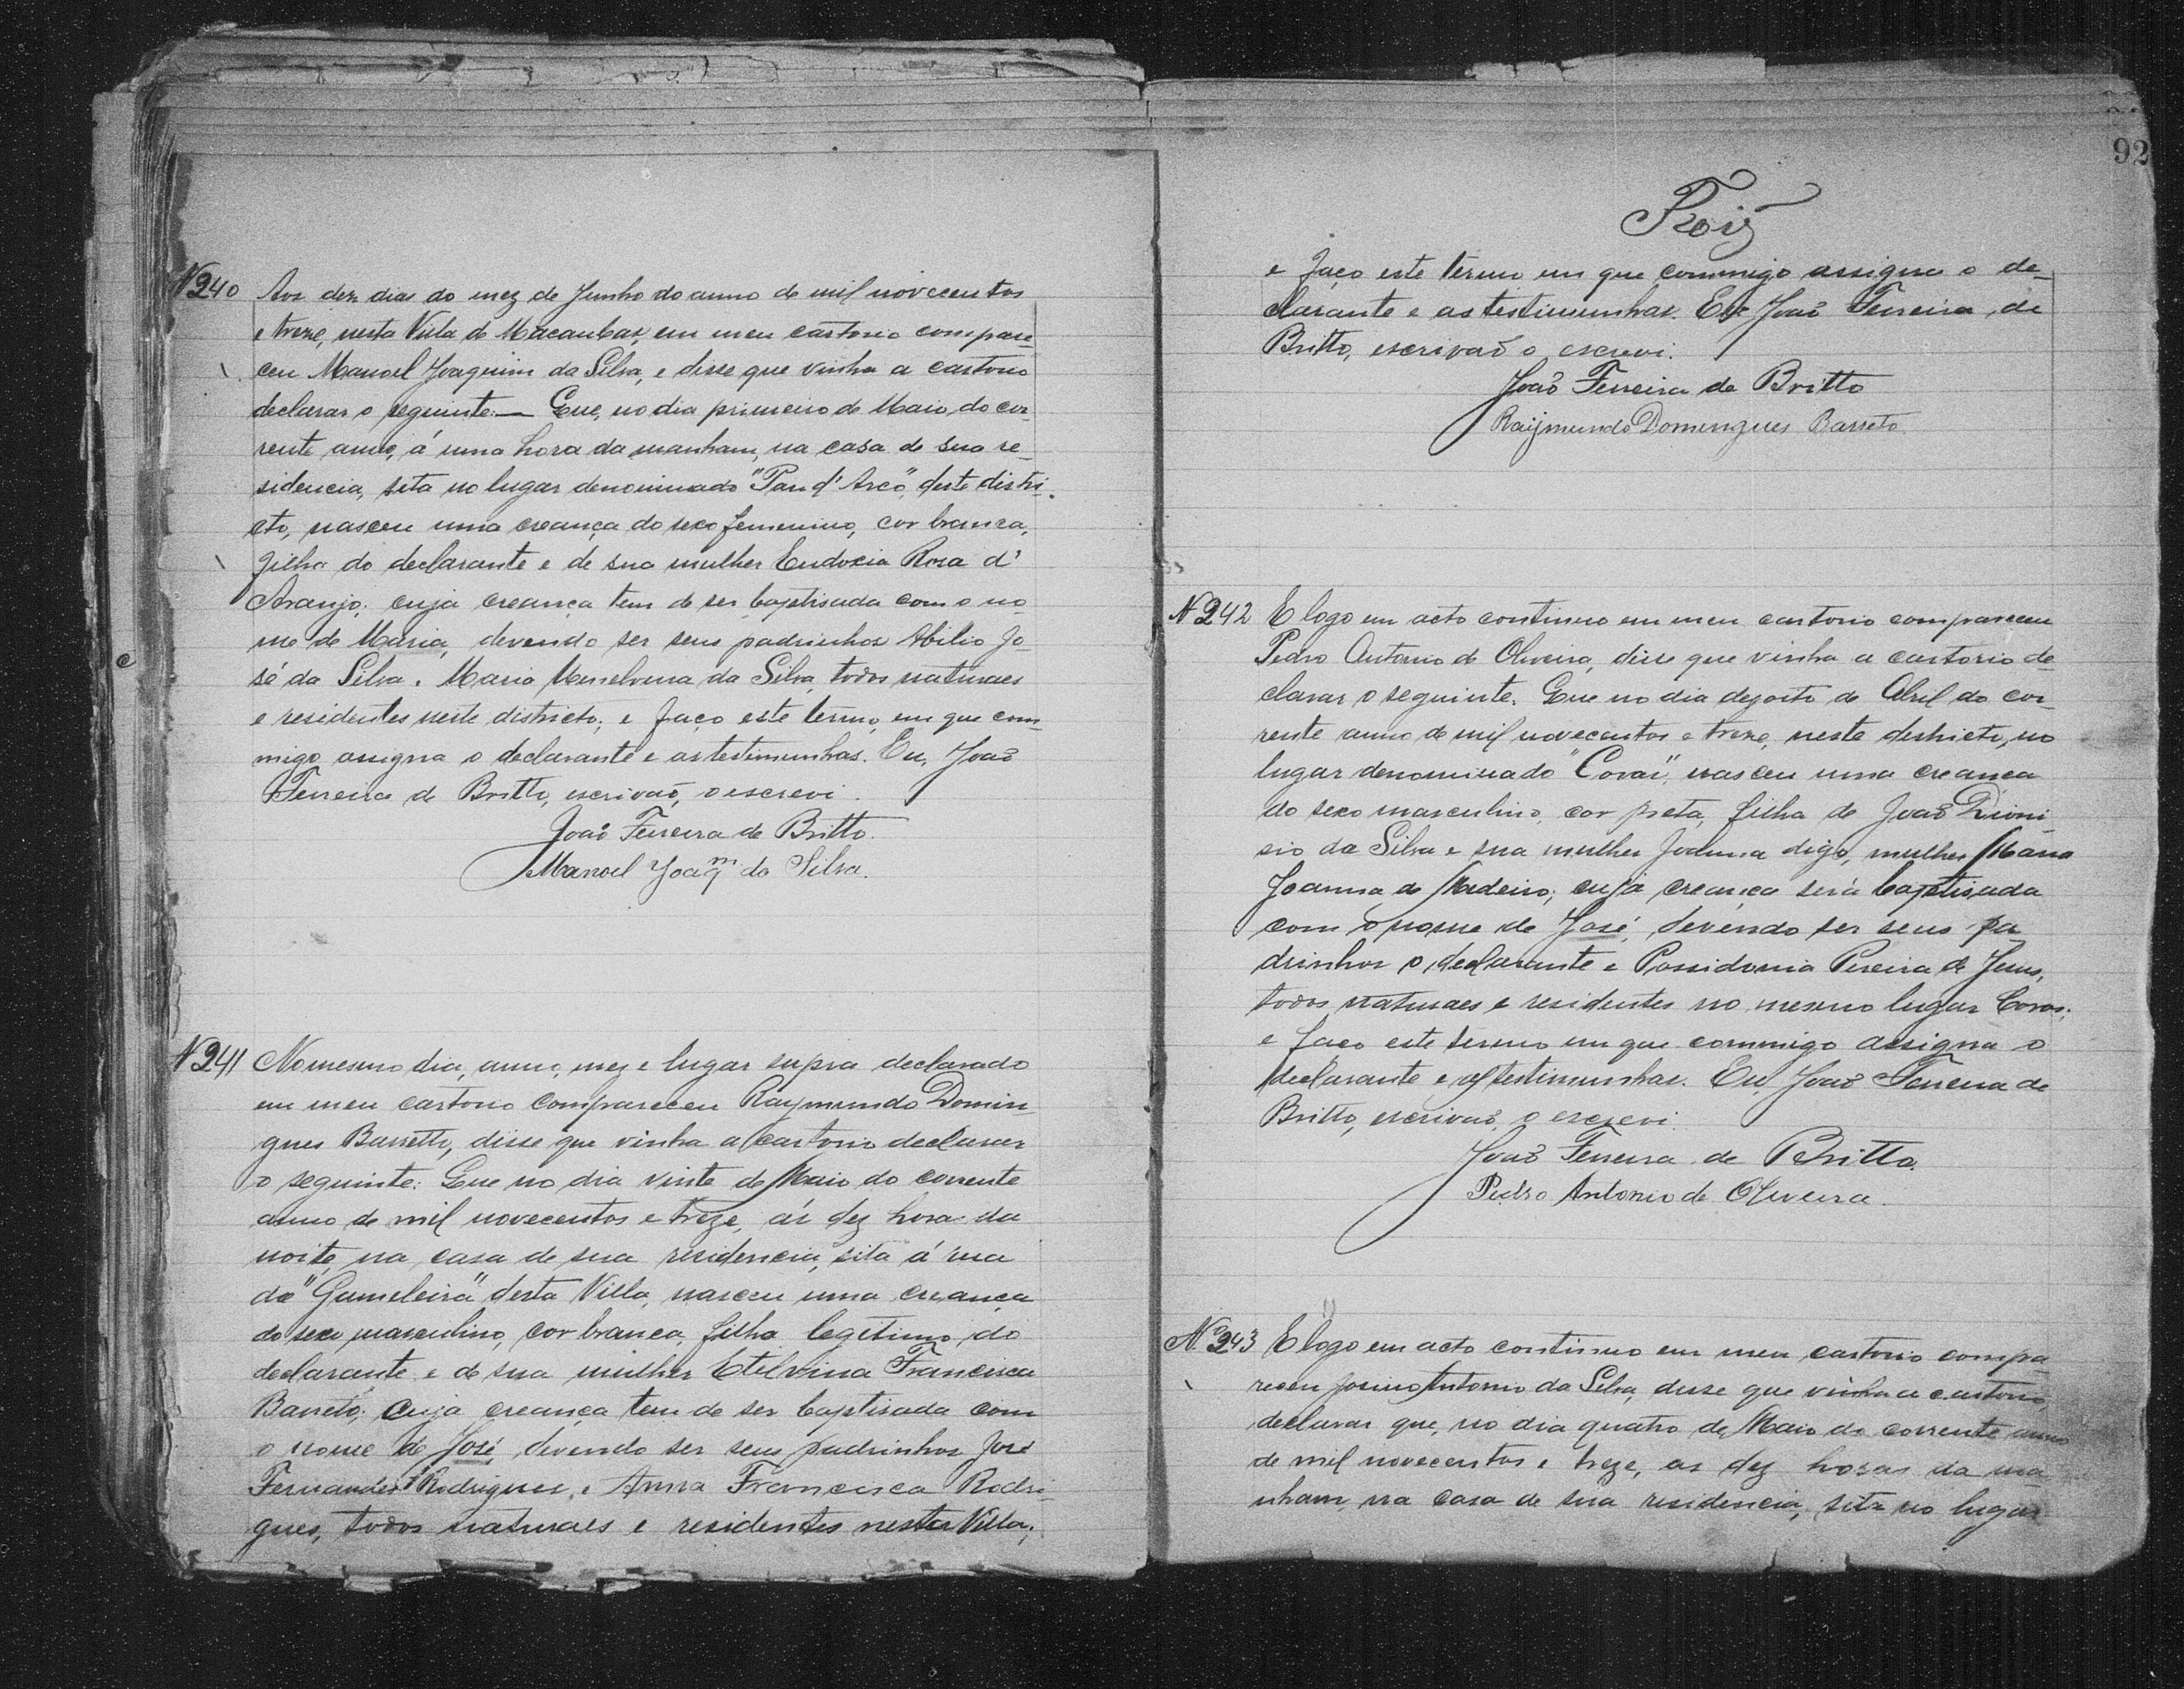 N 240 Aos dez dias do mez de Junho do anno de mil novecentos
e treze, nesta Villa de Macaubas, em meu cartorio compare
ceu Manoel Joaquim da Silva, e disse que vinha a cartorio
declarar o seguinte:— Que, no dia primeiro de Maio, do cor-
rente anno, á uma hora da manham, na casa de sua re-
sidencia, sita no lugar denominado "Pau d'Arco", deste distri-
cto, nasceu uma creança do sexo femenino, cor branca,
filha do declarante e de sua mulher Eudoxia Rosa d'
Araujo; cuja creança tem de ser baptisada com o no-
me de Maria, devendo ser seus padrinhos Abilio Jo-
sé da Silva e Maria da Silva, todos naturaes
e residentes neste districto; e faço este termo, em que com-
migo assigna o declarante e as testimunhas. Eu, João
Ferreira de Britto, escrivaõ, o escrevi.
João Ferreira de Britto.
Manoel Joaqm da Silva.
N 241 No mesmo dia, anno, mez e lugar supra declarado
em meu cartorio compareceu Raymundo Domin
gues Barretto, disse que vinha a cartorio declarar
o seguinte: Que no dia vinte de Maio do corrente
anno de mil novecentos e treze, ás dez hora da
noite, na casa de sua residencia, sita á rua
da "Gameleira" desta Villa, nasceu uma creança
do sexo masculino, cor branca, filha legitimo do
declarante e de sua mulher Etelvina Francisca
Barreto; cuja creança tem de ser baptisada com
o nome de José, devendo ser seus padrinhos José
Fernandes Rodrigues, e Anna Francisca Rodri-
gues, todos naturaes e residentes nesta Villa;
92
e faço este termo em que commigo assigna o de-
clarante e as testimunhas. Eu João Ferreira, de
Britto, escrivaõ o escrevi.
João Ferreira de Britto
Raijmundo Domingues Barreto
N 242 E logo em acto continuo em meu cartorio compareceu
Pedro Antonio de Oliveira, disse que vinha a cartorio de
clarar o seguinte. Que no dia dezoito de Abril do cor-
rente anno de mil novecentos e treze, neste destricto, no
lugar denominado "Covas", nasceu uma creança
do sexo masculino, cor preta, filha de João Dioni-
sio da Silva e sua mulher Joanna digo, mulher Maria
Joanna de Madeiro; cuja creança será baptisada
com o nome de José, devendo ser seus pa
drinhos o declarante e Possidonia Pereira de Jesus,
todos naturaes e residentes no mesmo lugar Covas;
e faço este termo em que commigo assigna o
declarante e as testimunhas. Eu, João Ferreira de
Britto, escrivaõ, o escrevi.
João Ferreira de Britto.
Pedro Antonio de Oliveira.
Nº 243 E logo em acto continuo em meu cartorio compa
receu Josino Antonio da Silva, disse que vinha a cartorio
declarar que, no dia quatro de Maio do corrente anno
de mil novecentos e treze, as dez horas da ma
nham na casa de sua residencia, sita no lugar